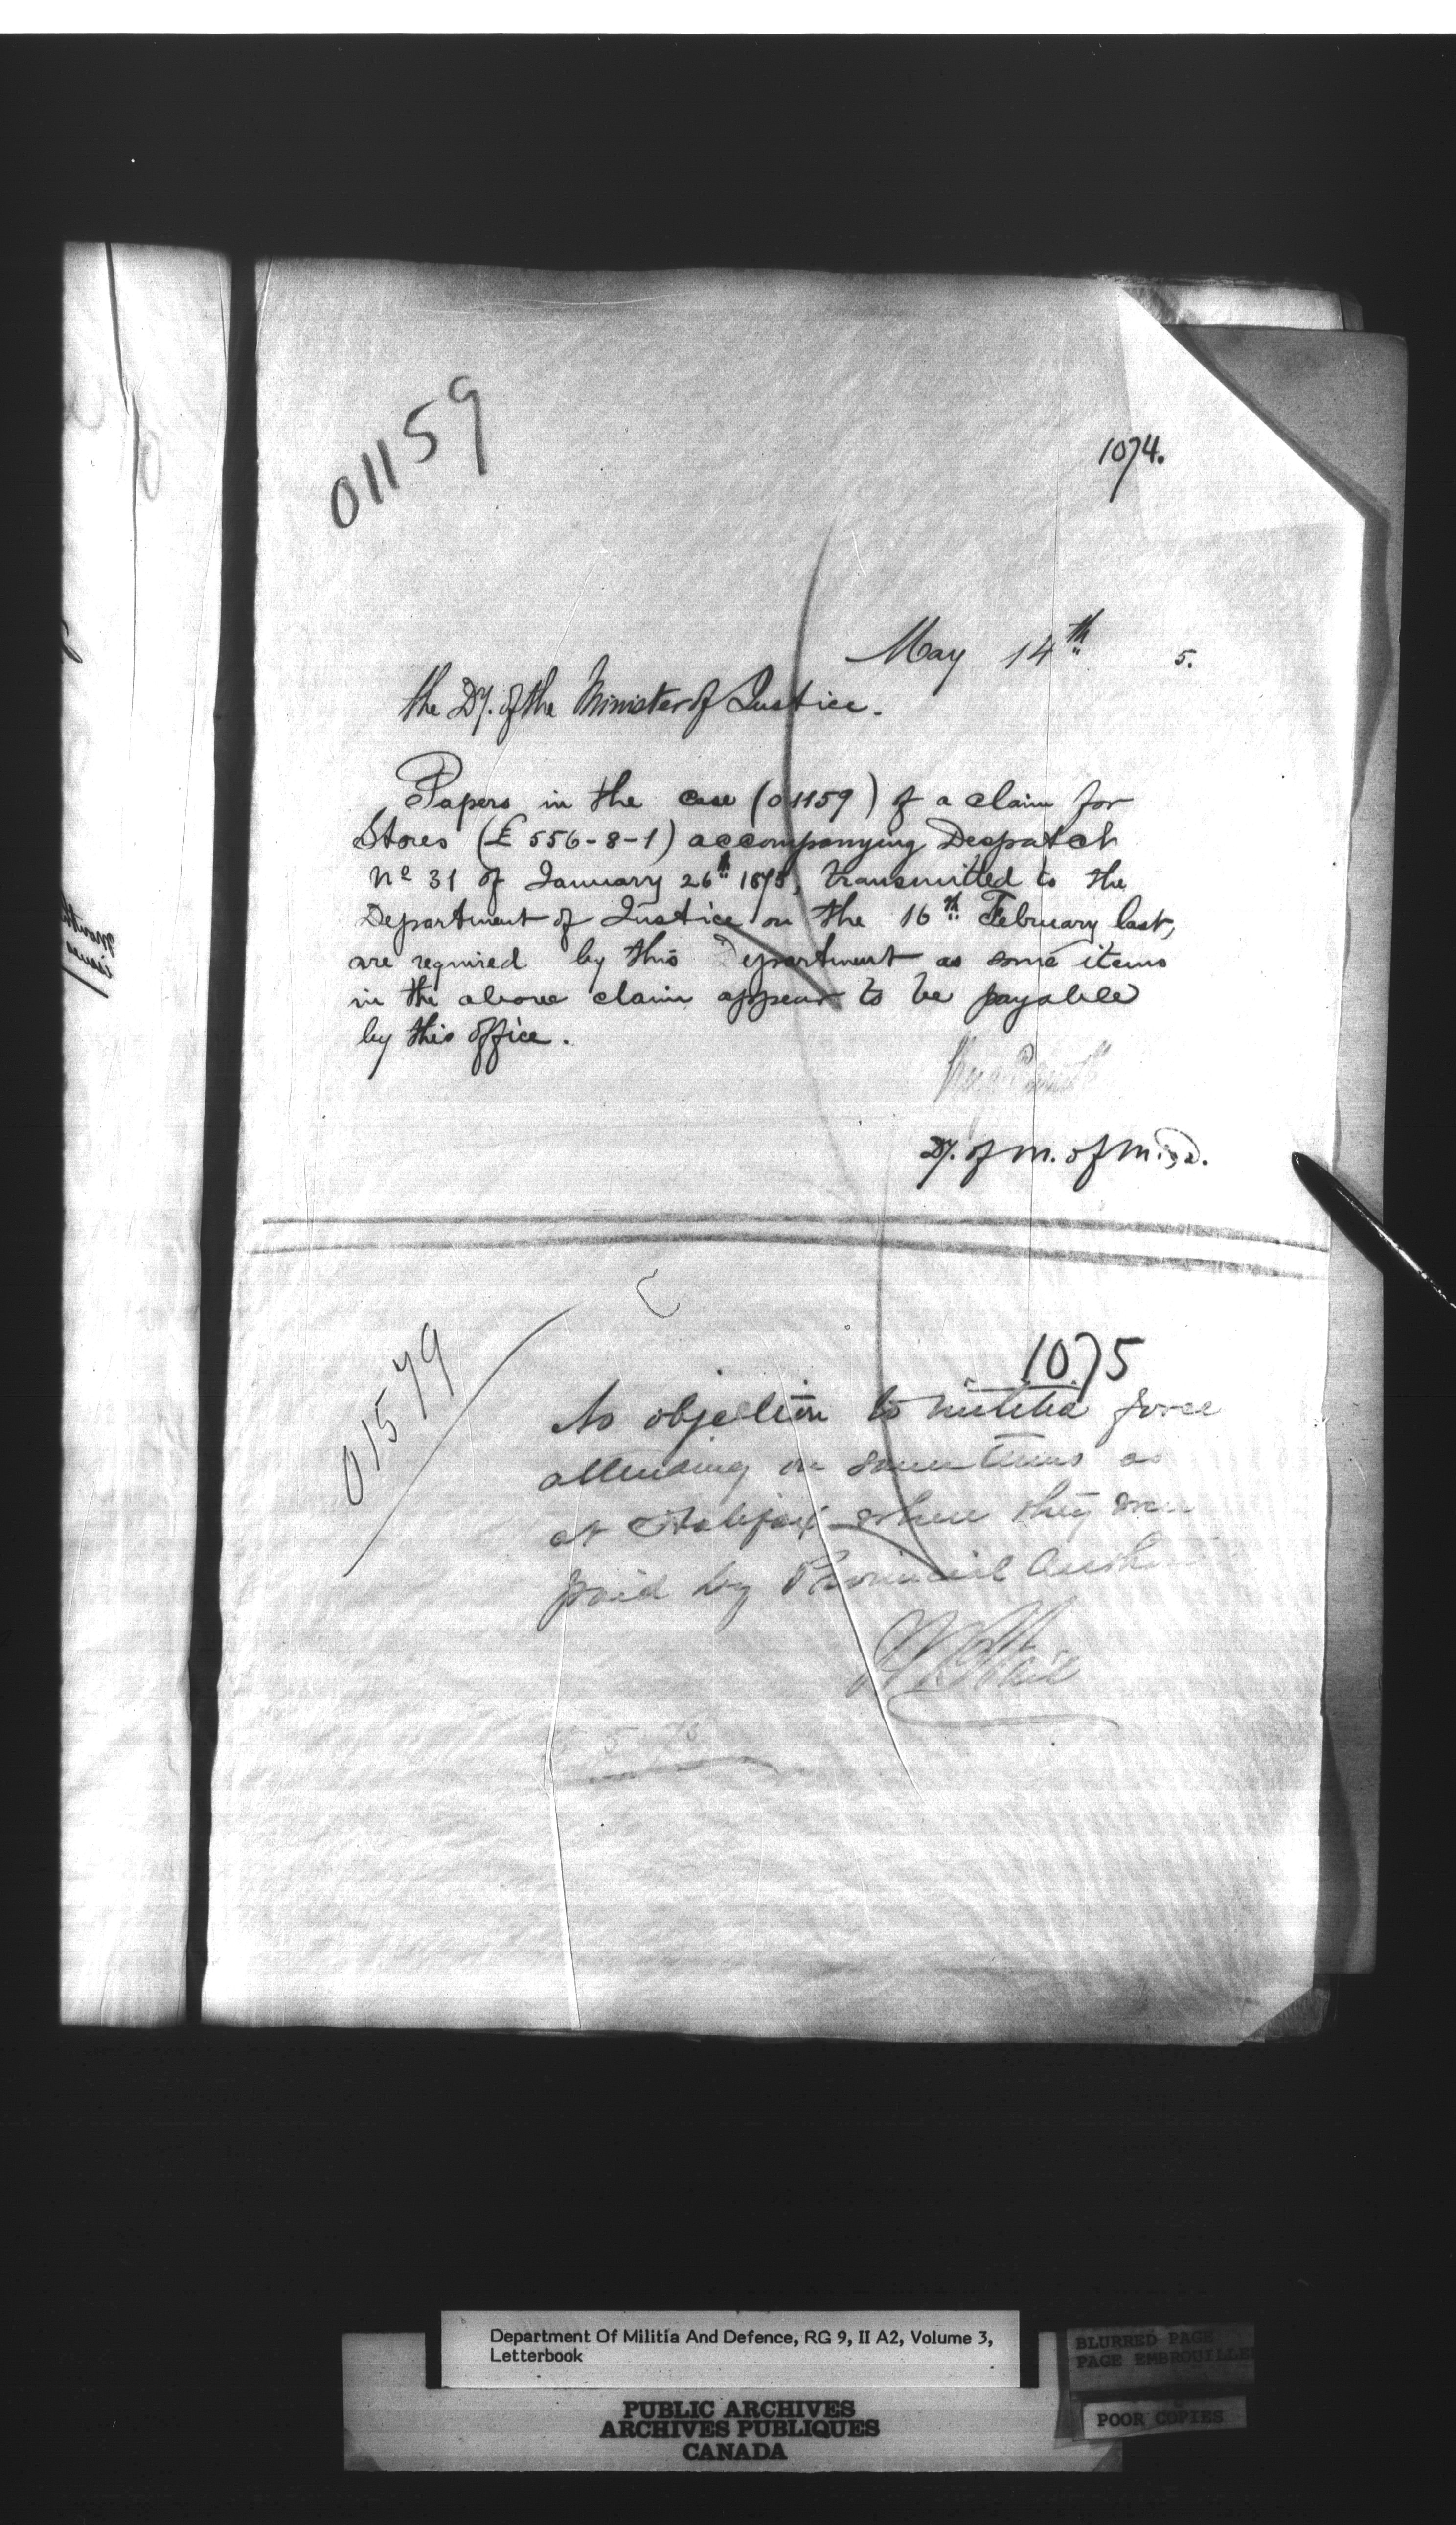 01159
1074.
May 14th 5.
the Dy. of the Minister of Justice.
Papers in the case (01159) of a claim for
Stores (£ 556-8-1) accompanying Despatch
No 31 of January 26th 1875, transmitted to the
Department of Justice on the 16th February last,
are required by this Department as some items
in the above claim appear to be payable
by this office.
Dy. of M. of M. & D.
01579
1075
No objection to militia force
attending on same terms as
at Halifax where they were
paid by Provincial
5 75
Department Of Militia And Defence, RG 9, II A2, Volume 3,
Letterbook
BLURRED PAGE
PAGE EMBROUILLE
POOR COPIES
PUBLIC ARCHIVES
ARCHIVES PUBLIQUES
CANADA